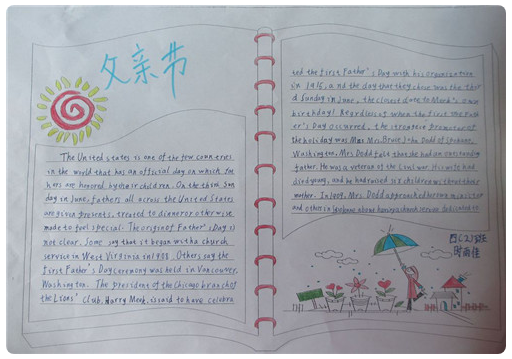 父亲节
The United States is one of the few countries
in the world that has an official day on which fat
hers are honored by their children. On the third Sun
day in June, fathers all across the United States
are given presents, treated to dinner or otherwise
made to feel special. The origin of Father's Day is
not clear. Some say that it began with a church
service in West Virginia in 1908. Others say the
first Father's Day ceremony was held in Vancouver,
Washington. The president of the Chicago branch of
the Lions' Club, Harry Meek, is said to have celebra
ted the first Father's Day with his organization
in 1915, and the day that they chose was the thir
d Sunday in June, the closest date to Meek's own
birthday! Regardless of when the first
Day occurred, the strongest promoter of
the holiday was Mrs. Bruce John Dodd of Spokane,
Washington. Mrs. Dodd felt that she had an outstanding
father. He was a veteran of the Civil War. His wife had
died young, and he had raised six children without their
mother. In 1909, Mrs. Dodd approached her own minister
and others in Spokane about having a church service dedicated to
四(2)班